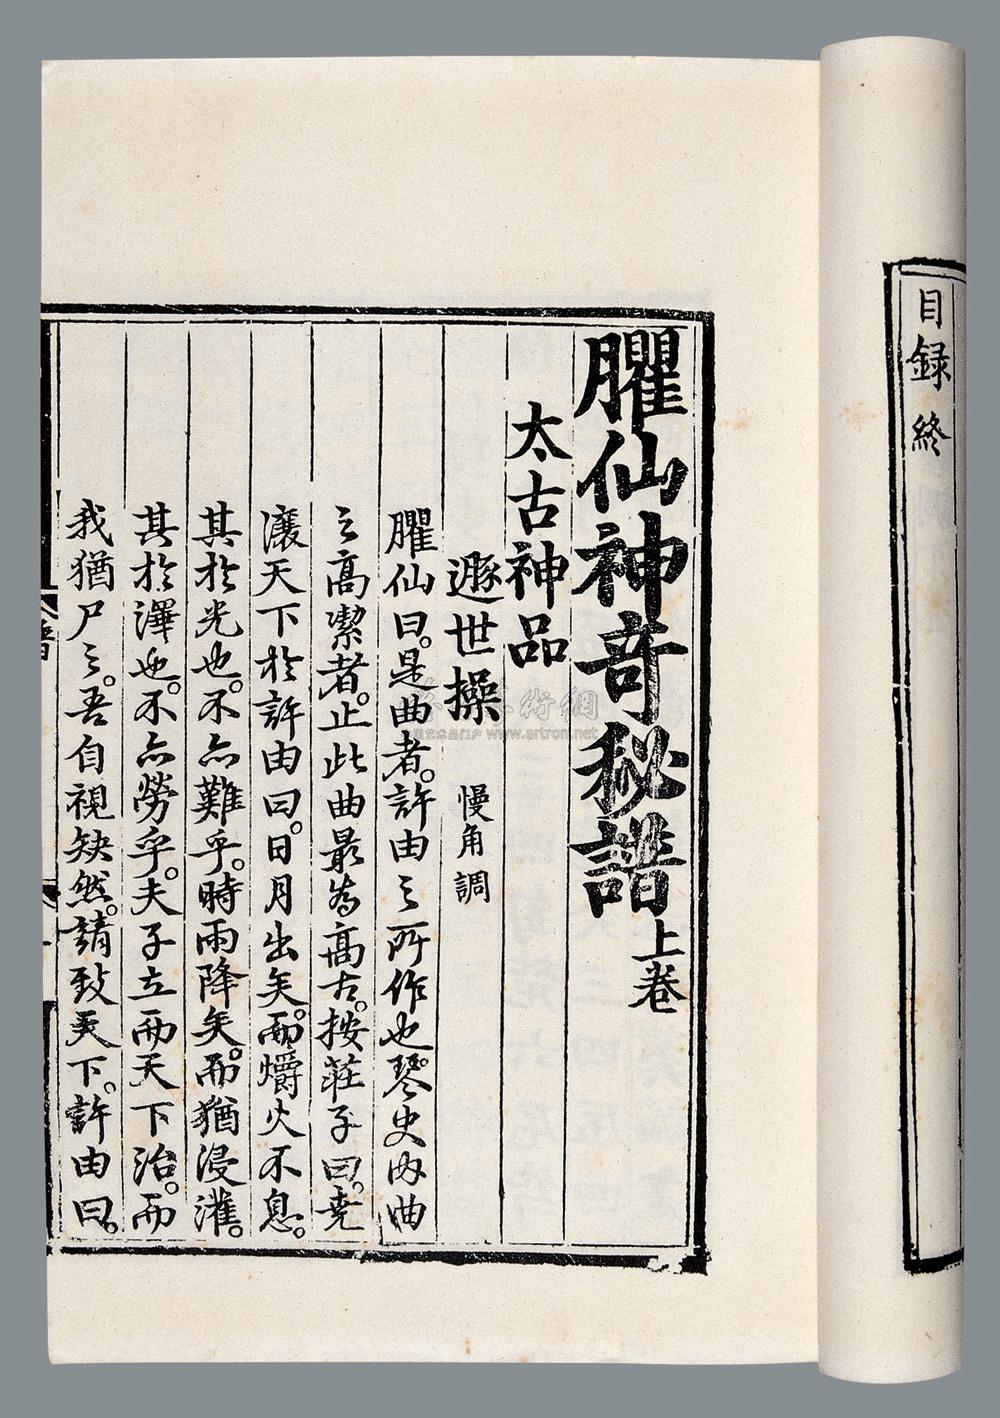 目録終
臞仙神奇秘譜上卷
太古神品
遯世操 慢角調
臞仙曰。是曲者。許由之所作也。琴史內曲
之高潔者。止此曲最為高古。按莊子曰。堯
讓天下於許由曰。日月出矣。而爝火不息。
其於光也。不亦難乎。時雨降矣。而猶浸灌。
其於澤也。不亦勞乎。夫子立而天下治。而
我猶尸之。吾自視缺然。請致天下。許由曰。
譜
www.artron.net